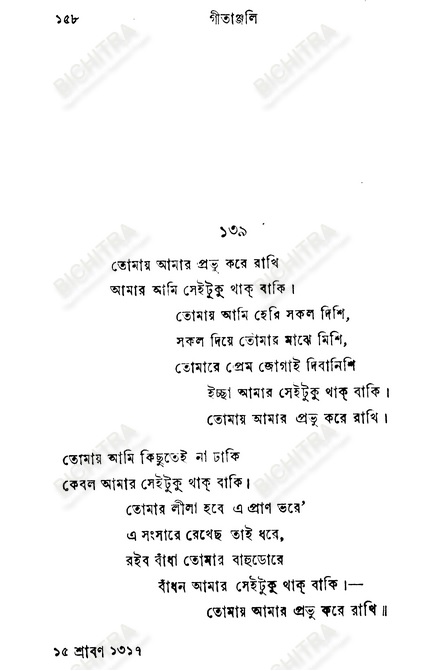 ১৫৮ গীতাঞ্জলি
১৩৯
তোমায় আমার প্রভু করে রাখি
আমার আমি সেইটুকু থাক্ বাকি।
তোমায় আমি হেরি সকল দিশি,
সকল দিয়ে তোমার মাঝে মিশি,
তোমারে প্রেম জোগাই দিবানিশি
ইচ্ছা আমার সেইটুকু থাক্ বাকি।
তোমায় আমার প্রভু করে রাখি।
তোমায় আমি কিছুতেই না ঢাকি
কেবল আমার সেইটুকু থাক্ বাকি।
তোমার লীলা হবে এ প্রাণ ভরে’
এ সংসারে রেখেছ তাই ধরে,
রইব বাঁধা তোমার বাহুডোরে
বাঁধন আমার সেইটুকু থাক্ বাকি।—
তোমায় আমার প্রভু করে রাখি॥
১৫ শ্রাবণ ১৩১৭
BICHITRA
BICHITRA
BICHITRA
BICHITRA
BICHITRA
BICHITRA
BICHITRA
BICHITRA